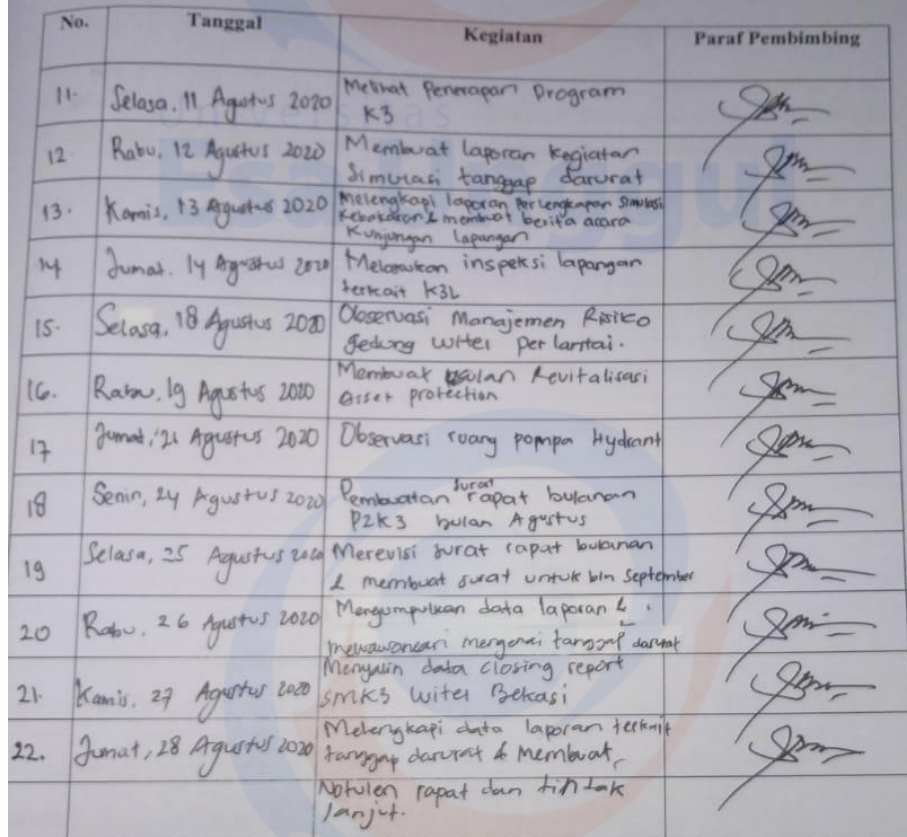 No. Tanggal Kegiatan Paraf Pembimbing
11. Selasa, 11 Agustus 2020 Melihat Penerapan Program
K3
12. Rabu, 12 Agustus 2020 Membuat laporan kegiatan
Simulasi tanggap darurat
13. Kamis, 13 Agustus 2020 Melengkapi laporan Perlengkapan Simulasi
Kebakaran & membuat berita acara
Kunjungan lapangan
14 Jumat, 14 Agustus 2020 Melakukan inspeksi lapangan
terkait K3L
15. Selasa, 18 Agustus 2020 Observasi Manajemen Risiko
gedung witel per lantai.
16. Rabu, 19 Agustus 2020 Membuat usulan Revitalisasi
Asset protection
17 Jumat, 21 Agustus 2020 Observasi ruang pompa Hydrant
18 Senin, 24 Agustus 2020 Pembuatan surat rapat bulanan
P2K3 bulan Agustus
19 Selasa, 25 Agustus 2020 Merevisi surat rapat bulanan
& membuat surat untuk bln September
20 Rabu, 26 Agustus 2020 Mengumpulkan data laporan &
mewawancari mengenai tanggap darurat
21. Kamis, 27 Agustus 2020 Menyalin data closing report
SMK3 Witel Bekasi
22. Jumat, 28 Agustus 2020 Melengkapi data laporan terkait
tanggap darurat & Membuat
Notulen rapat dan tindak
lanjut.
Universitas
Esa Unggul